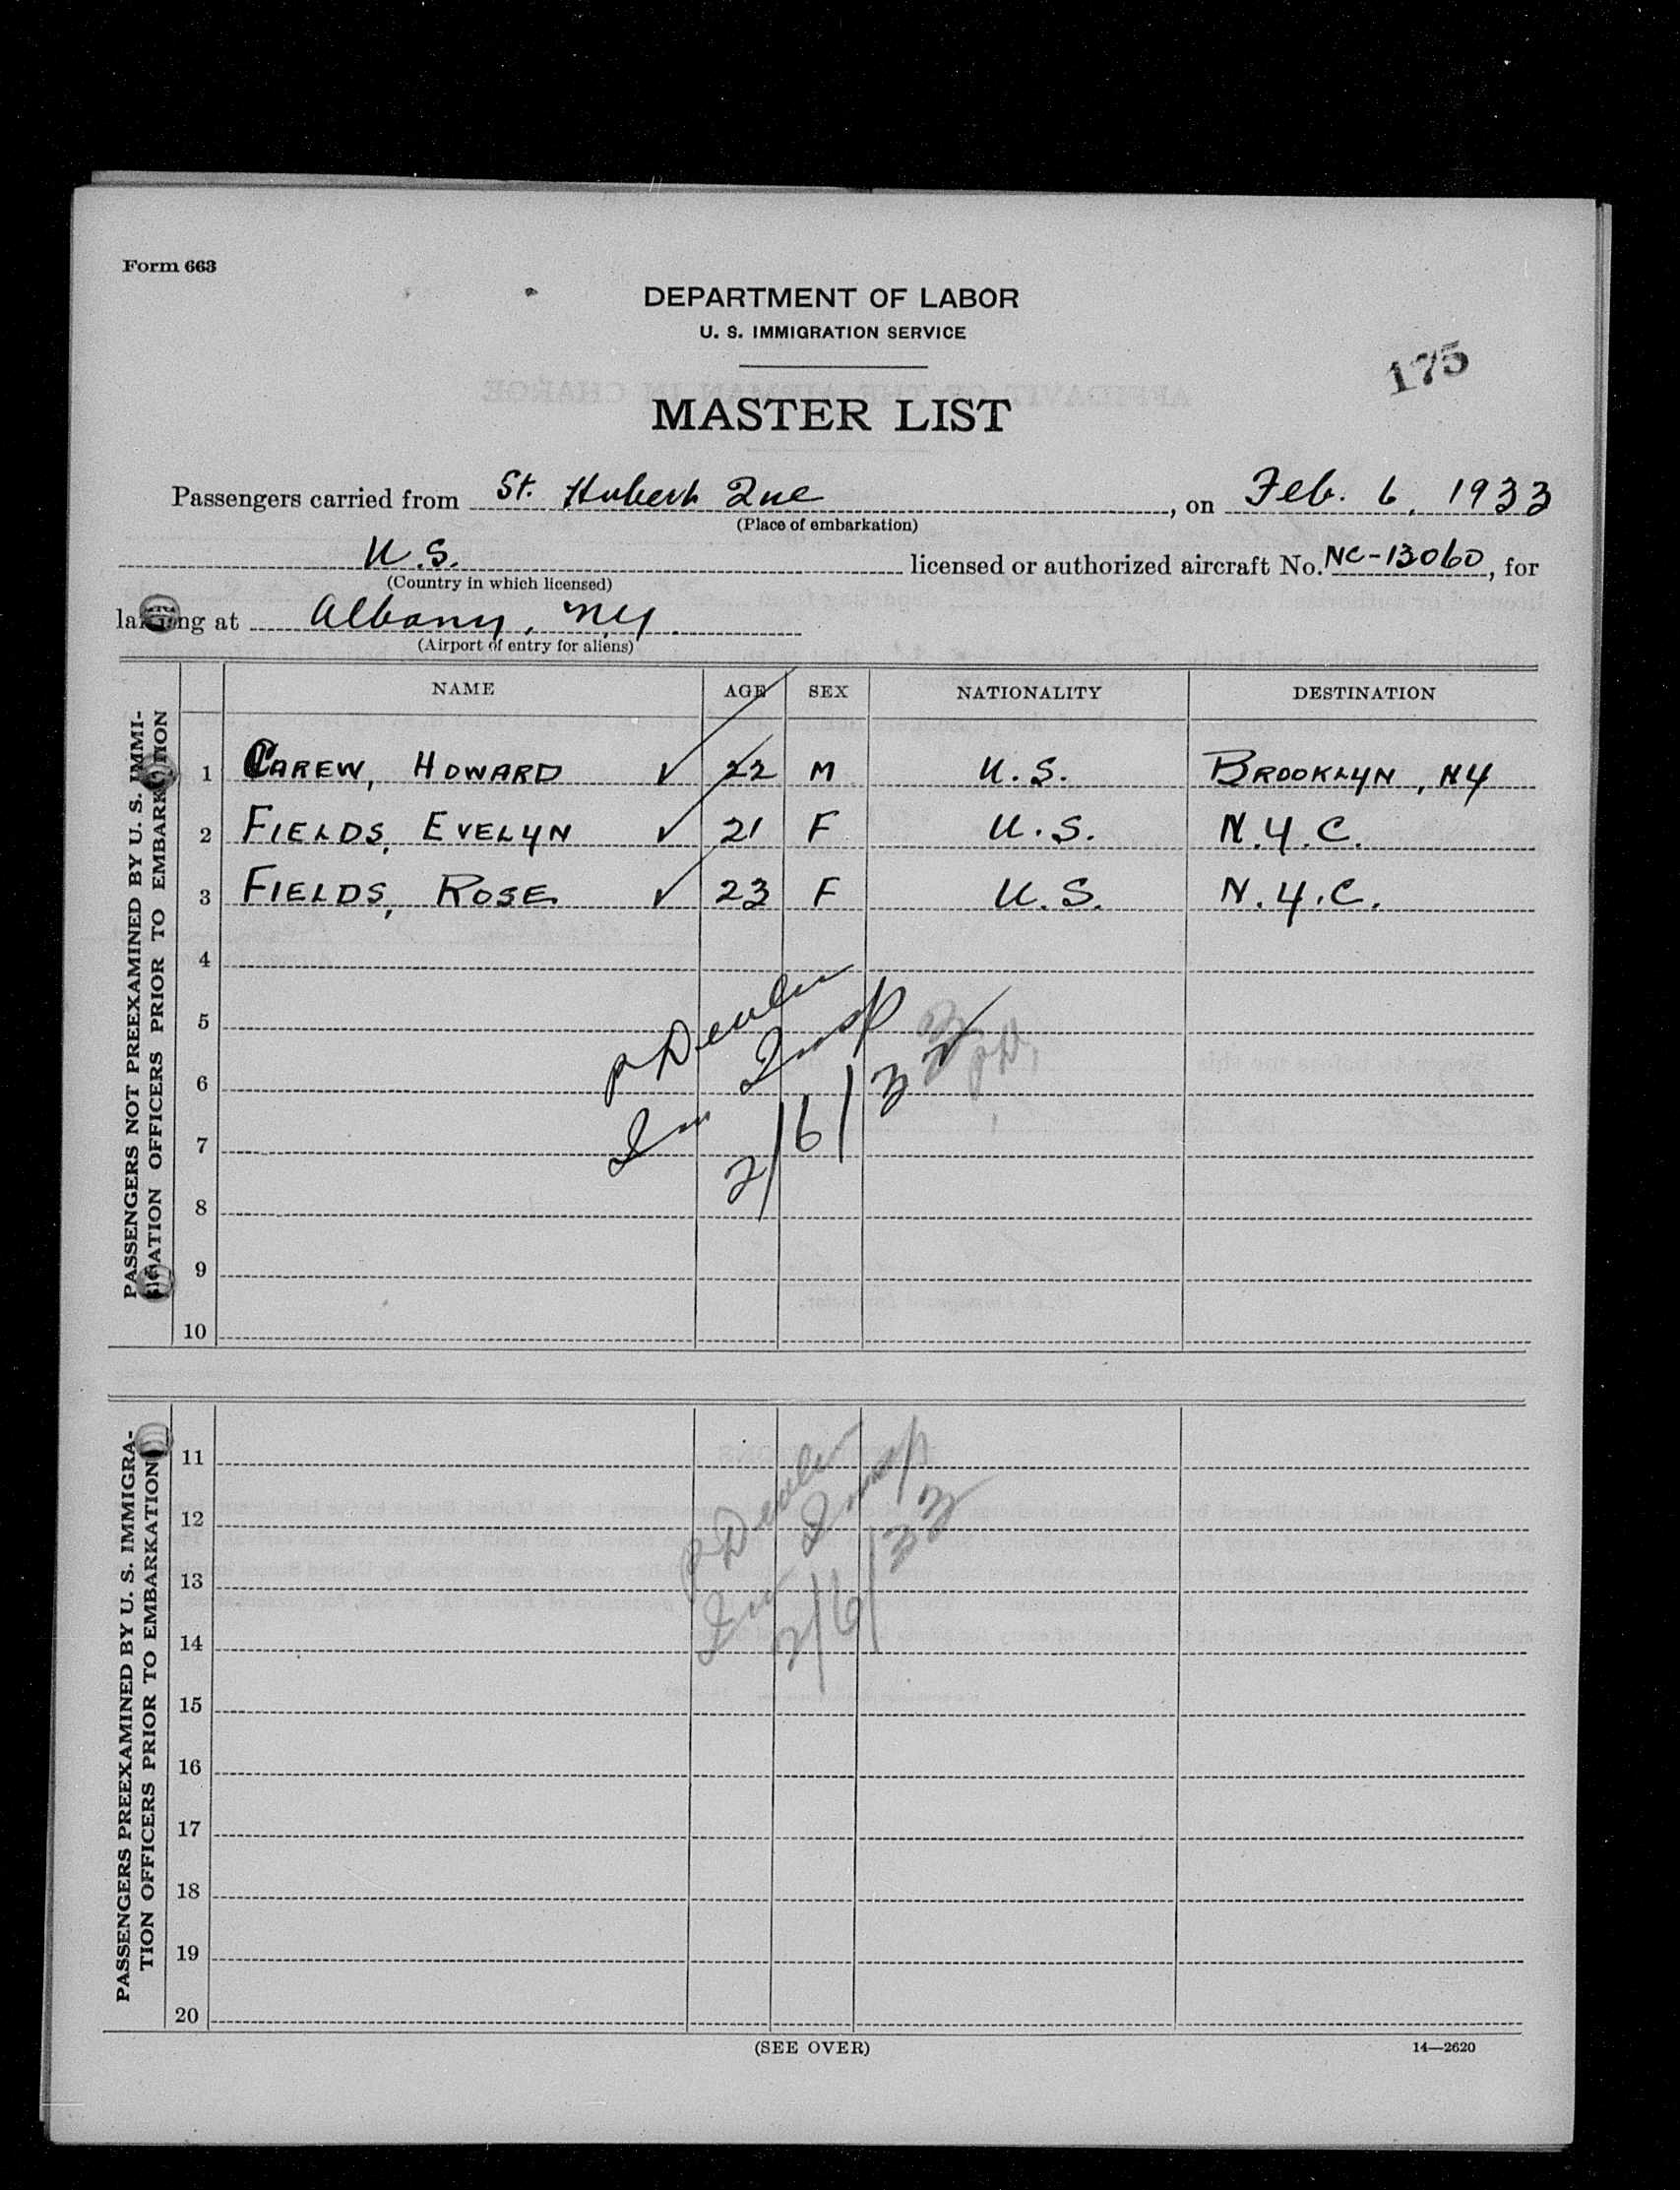 Form 663
DEPARTMENT OF LABOR
U. S. IMMIGRATION SERVICE
175
MASTER LIST
Passengers carried from St. Hubert Que, on Feb. 6, 1933
(Place of embarkation)
U.S. licensed or authorized aircraft No. NC-13060, for
(Country in which licensed)
landing at Albany, NY.
(Airport of entry for aliens)
NAME AGE SEX NATIONALITY DESTINATION
PASSENGERS NOT PREEXAMINED BY U. S. IMMI-
GRATION OFFICERS PRIOR TO EMBARKATION
1 CAREW, HOWARD ✓ 22 M U.S. BROOKLYN, NY
2 FIELDS, EVELYN ✓ 21 F U.S. N.Y.C.
3 FIELDS, ROSE ✓ 23 F U.S. N.Y.C.
4
5
6
7
8
9
10
P Devlin
Im Insp
2/6/33
PASSENGERS PREEXAMINED BY U. S. IMMIGRA-
TION OFFICERS PRIOR TO EMBARKATION
11
12
13
14
15
16
17
18
19
20
P Devlin
Im Insp
2/6/33
(SEE OVER)
14—2620